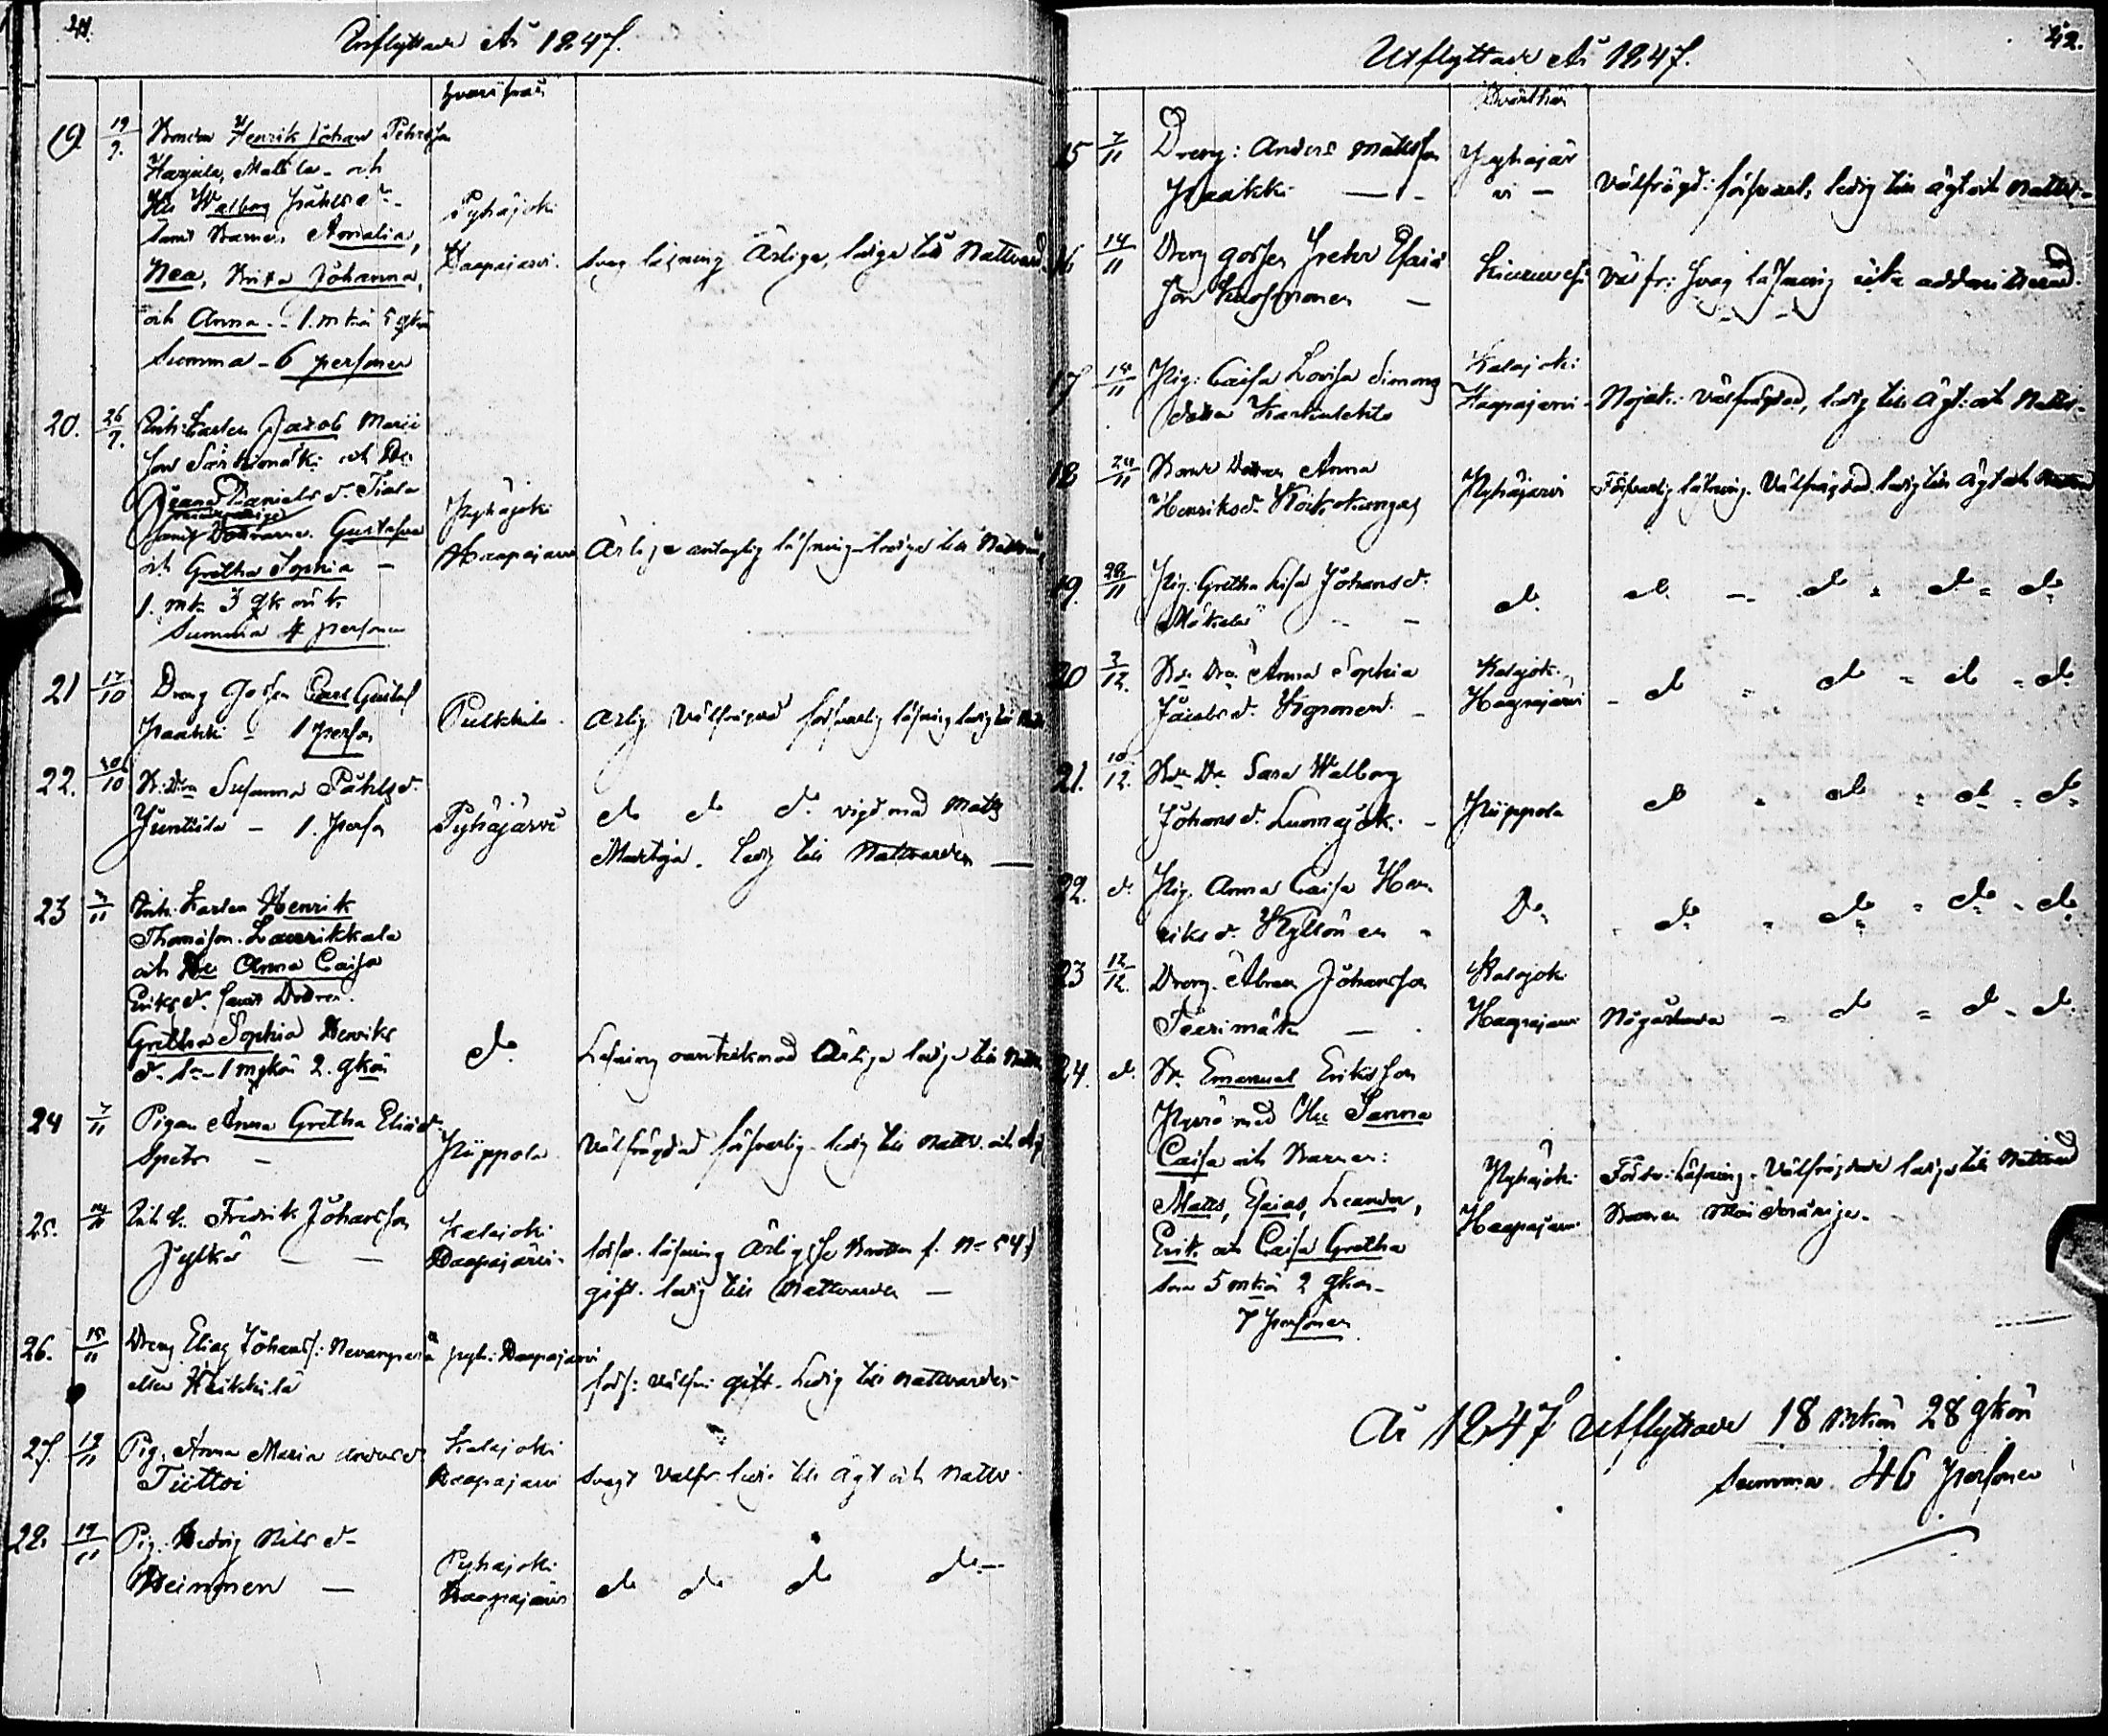 41.
Inflyttade År 1847.
hvarifrån
19. 19/9. Bonden Henrik Johan Pehrsson
Harjula, Mattila och
Hu Walborg Påhlsd:r
samt Barnen Amalia,
Nea, Brita Johanna,
och Anna - 1. mkö 5 qkö
Summa - 6 personer
Pyhäjoki
Haapajarvi.
svag läsning Ärliga, lediga till Nattvard.
20. 26/9. Inh: Karlen Jacob
son Särkimäki och
Daniels d. Tiala
samt Döttrarna. Gustafva
och Gretha Sophia -
1. mk 3 qk ök
Summa 4 personer
Pyhäjoki
Haapajarvi
Ärliga antaglig läsning lediga till Nattvard
21 17/10 Dreng Gossen Carl Gustaf
Paakki - 1 person
Pulkkila.
ärlig Välfrägdad försvarlig läsning ledig till
22. 10/10 B: Dra Susanna Påhlsd.
Junttila - 1. Person
Pyhäjärvi
do do do vigd med Matts
Ledig till Nattvarden -
23 7/11 Inh. Karlen Henrik
Thomasson. Laurikkala
och Hu Anna Caisa
Eriksd. samt Dottren
Gretha Sophia Henriks
d. S:a 1 mkön 2. qkön
do
Läsning Ärliga lediga till Nattv
24 7/11 Pigan Anna Gretha Eliaed.
Spets -
Piippola
Välfrägdad försvarlig. ledig till nattv. och
25. 14/11 Fredrik Johansson
Jylkä - -
Kalajoki
Haapajärvi.
försv. läsning Ärlig
gift. ledig till Nattvarden -
26. 15/11 Dreng Elias Johanss: Nevanperä
eller Heikkilä
pyh: Haapajarvi
förs: välfr: gift. Ledig till nattvarden
27. 19/11 Pig. Anna Maria Andersd
Tiittoi
Kalajoki
Haapajarvi
svagt valfr. ledig till ägt och nattv.
28. 19/11 Pig. Hedvig Nils d.
Heinonen -
Pyhäjoki
Haapajärvi
do do do do -
42.
Utflyttade År 1847.
Hvarthän
15 7/11 Dreng: Anders Mattsson
Paakki - -
Pyhäjär
vi -
Välfrägd: försvarl. ledig till ägt och nattv.
16 14/11 Dreng gossen Petter Esais
son Kuosmonen -
Kiuruvesi
Välfr: svag läsning icke admitterad.
17 14/11 Pig: Caisa Lovisa Simons
dotter Karhulehto
Kalajoki
Haapajarvi.
Nöjakt. Välfrägdad, ledig till Ägt: och Nattv.
18 24/11 Bonde Dottren Anna
Henriksd. Koitokangas
Pyhäjarvi
Försvarlig läsning. Välfrägdad. ledig till ägt och Nattvard
19. 28/11 Pig: Gretha Lisa Johansd.
Mökälä - -
do.
do. - do. do - do.
20 3/12. B:de Dra Anna Sophia
Jacobs d. Kopponen. -
Kalajoki,
Haapajarvi
- do - do - do - do.
21. 10/12. B:de Dr. Sara Walborg
Johans d. Luomajoki. -
Piippola
do - do - do - do
22. d. Pig. Anna Caisa Hen
riks d. Kyllönen -
Do.
do. - do. - do. - do.
23 12/12. Dreng. Abram Johansson
Teerimäki -
Kalajoki
Haapajarvi
Någorlunda - do - do - do.
24. d. B. Emanuel Eriksson
Pyrrö med Hu Sanna
Caisa och Barnen:
Matts, Esaias, Leander,
Erik och Caisa Gretha
S:a 5 mkö 2 qkön-
7 Personer
Pyhäjoki
Haapajarvi
Försv: Läsning. Välfrägdade lediga till Nattvard
Barnen minderårige.
År 1847 utflyttade 18 mkön 28 qkön
Summa 46 Personer